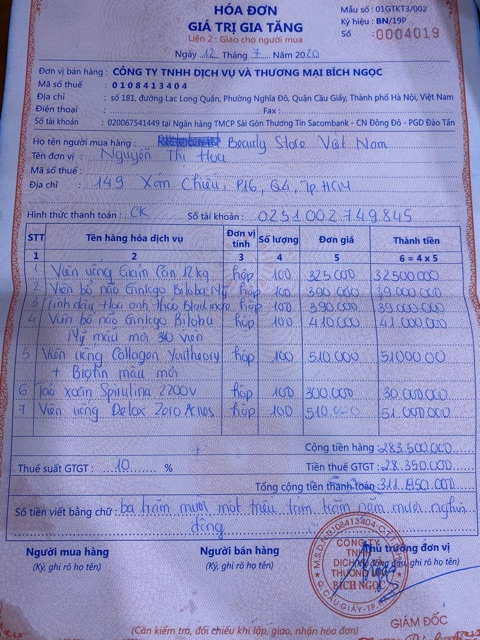 HÓA ĐƠN
GIÁ TRỊ GIA TĂNG
Liên 2: Giao cho người mua
Ngày 12 Tháng 7 Năm 2020
Mẫu số : 01GTKT3/002
Ký hiệu : BN/19P
Số : 0004019
Đơn vị bán hàng : CÔNG TY TNHH DỊCH VỤ VÀ THƯƠNG MẠI BÍCH NGỌC
Mã số thuế : 0108413404
Địa chỉ : số 181, đường Lạc Long Quân, Phường Nghĩa Đô, Quận Cầu Giấy, Thành phố Hà Nội, Việt Nam
Điện thoại : Fax :
Số tài khoản : 020067541449 tại Ngân hàng TMCP Sài Gòn Thương Tín Sacombank - CN Đông Đô - PGD Đào Tấn
Họ tên người mua hàng : Beauty Store Việt Nam
Tên đơn vị : Nguyễn Thị Hoa
Mã số thuế :
Địa chỉ : 149 Xóm Chiếu, P16, Q4, Tp.HCM
Hình thức thanh toán : CK Số tài khoản : 0251002749845
STT Tên hàng hóa dịch vụ Đơn vị tính Số lượng Đơn giá Thành tiền
1 2 3 4 5 6 = 4 x 5
1 Viên uống Giảm Cân 12kg hộp 100 325.000 32500000
2 Viên bổ não Ginkgo Biloba Mỹ hộp 100 390.000 39.000.000
3 Tinh dầu Hoa anh thảo Blackmores hộp 100 390.000 39.000.000
4 Viên bổ não Ginkgo Biloba hộp 100 410.000 41.000.000
Mỹ mẫu mới 30 viên
5 Viên uống Collagen Youtheory hộp 100 510.000 51000.00
+ Biotin mẫu mới
6 Tảo xoắn Spirulina 2200v hộp 100 300.000 30.000.000
7 Viên uống Delox Zero Acnes hộp 100 510.000 51.000.000
Cộng tiền hàng : 283.500.000
Thuế suất GTGT : 10 % Tiền thuế GTGT : 28.350.000
Tổng cộng tiền thanh toán : 311.850.000
Số tiền viết bằng chữ : ba trăm mười một triệu tám trăm năm mươi nghìn
đồng
Người mua hàng Người bán hàng Thủ trưởng đơn vị
(Ký, ghi rõ họ tên) (Ký, ghi rõ họ tên) (Ký, đóng dấu, ghi rõ họ tên)
M.S.D.N:0108413404
CÔNG TY
TNHH
DỊCH VỤ VÀ
THƯƠNG MẠI
BÍCH NGỌC
Q.CẦU GIẤY-TP.
GIÁM ĐỐC
(Cần kiểm tra, đối chiếu khi lập, giao, nhận hóa đơn)